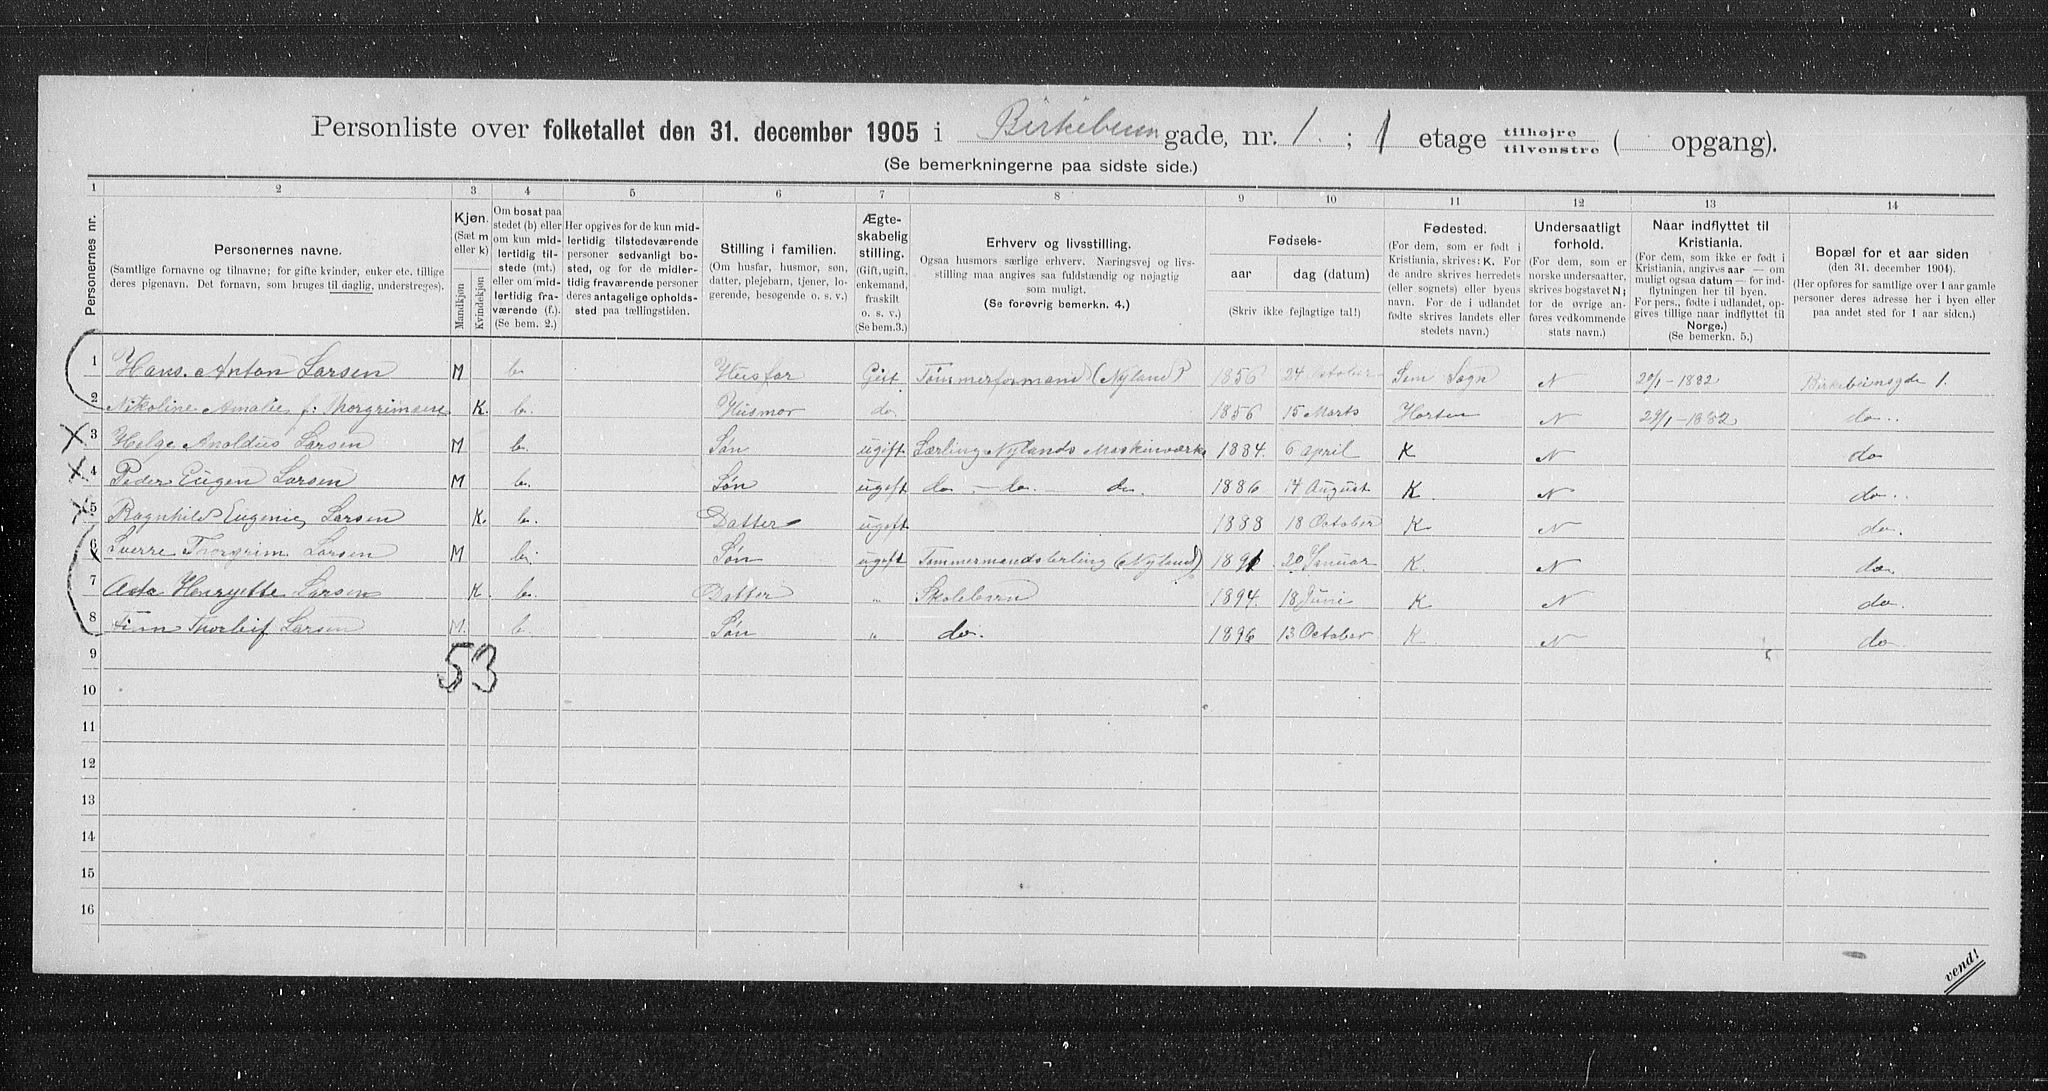 Personliste over folketallet den 31. december 1905 i Birkebeiner gade, nr. 1. ; 1 etage tilhøjre tilvenstre ( opgang).
(Se bemerkningerne paa sidste side.)
1 2 3 4 5 6 7 8 9 10 11 12 13 14
Personernes nr.
Personernes navne. (Samtlige fornavne og tilnavne; for gifte kvinder, enker etc. tillige deres pigenavn. Det fornavn, som bruges til daglig, understreges).
Kjøn. (Sæt m eller k) Mandkjøn Kvindekjøn
Om bosat paa stedet (b) eller om kun midlertidig tilstede (mt.) eller om midlertidig fraværende (f.). (Se bem. 2.)
Her opgives for de kun midlertidig tilstedeværende personer sedvanlig bosted, og for de midlertidig fraværende personer deres antagelige opholdssted paa tællingstiden.
Stilling i familien. (Om husfar, husmor, søn, datter, plejebarn, tjener, logerende, besøgende o. s. v.)
Ægteskabelig stilling. (Gift, ugift, enkemand, fraskilt o. s. v.) (Se bem.3.)
Erhverv og livsstilling. Ogsaa husmors særlige erhverv. Næringsvej og livsstilling maa angives saa fuldstændig og nøjagtig som muligt. (Se forøvrig bemerkn. 4.)
Fødsels- aar dag (datum) (Skriv ikke fejlagtige tal!)
Fødested. (For dem, som er født i Kristiania, skrives: K. For de andre skrives herredets (eller sognets) eller byens navn. For de i udlandet fødte skrives landets eller stedets navn.)
Undersaatligt forhold. (For dem, som er norske undersaatter, skrives bogstavet N; for de øvrige anføres vedkommende stats navn.)
Naar indflyttet til Kristiania. (For dem, som ikke er født i Kristiania, angives aar — om muligt ogsaa datum — for indflytningen her til byen. For pers., fødte i udlandet, opgives tillige naar indflyttet til Norge.) (Se bemerkn. 5.)
Bopæl for et aar siden (den 31. december 1904.) (Her opføres for samtlige over 1 aar gamle personer deres adresse her i byen eller paa andet sted for 1 aar siden.)
1 Hans. Anton Larsen M b. Husfar Gift Tømmerformand (Nyland) 1856 24 October Sem Sogn N 20/1-1882 Birkebeinergde 1.
2 Nikoline Amalie f. Thorgrimsen K. b. Husmor do. 1856 15 Marts Horten N 29/1-1882 do..
3 Helge Anoldius Larsen M b. Søn ugift Lærling Nylands Maskinværks 1884. 6 april K N do
4 Peder Eugen Larsen M b. Søn ugift do - do. - do. 1886 14 August K. N do..
5 Ragnhild Eugenie Larsen K. b. Datter ugift 1888 18 October K N do.
6 Sverre Thorgrim Larsen M b. Søn ugift Tømmermandslærling (Nyland) 1891 20 Januar K. N do.
7 Asta Henryette Larsen K. b. Datter " Skolebarn 1894. 18 Juni K N do.
8 Finn Thorleif Larsen M. b. Søn " do. 1896 13 October K N do.
9
53
10
11
12
13
14
15
16
vend!